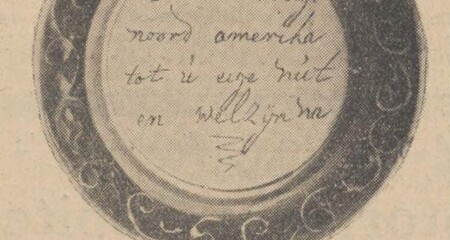 noord amerika
tot u eige nut
en welzijn